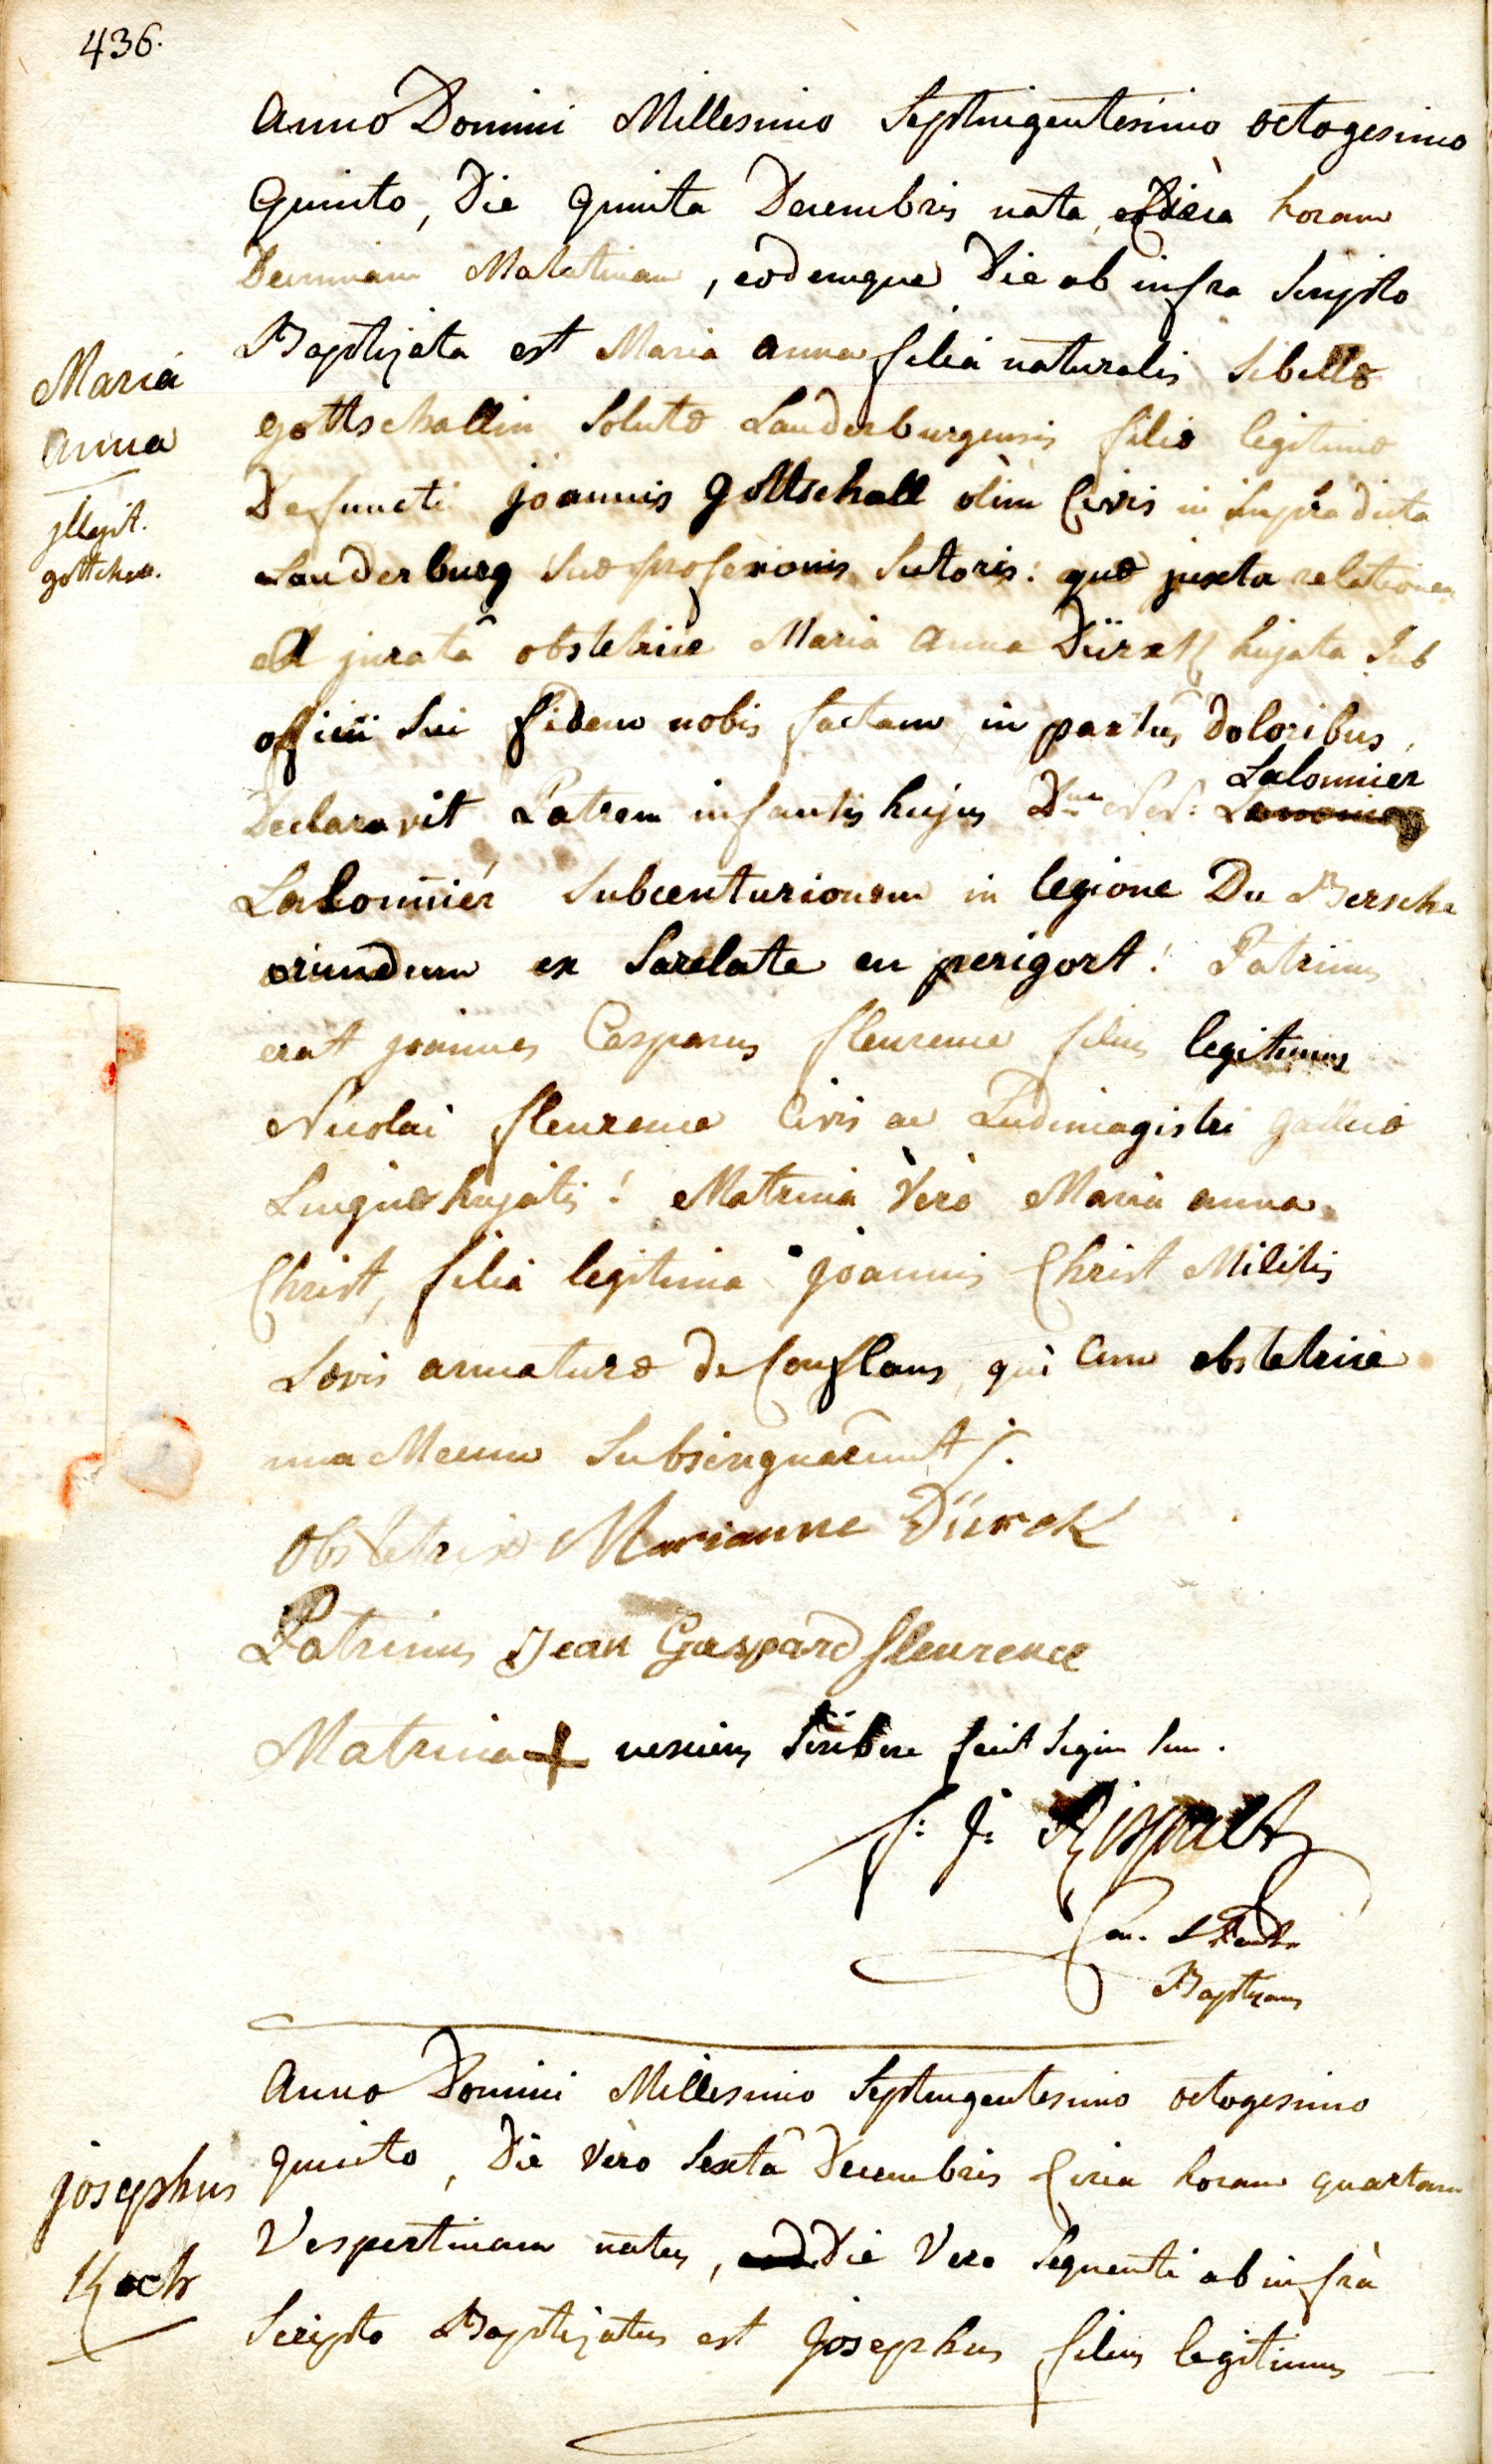 436.
Anno Domini Millesimo Septuigentesimo octogesimo
Quinto, Die Quinta Decembris nata, circa horam
Decimam Matutinam, eodemque Die ab infra Scripto
Baptizata est Maria anna filia naturalis Sibillæ
gottschallin Solutæ Lauderburgensis filiæ legitimæ
Defuncti joannis gottschall olim Civis in supradicta
Lauderburg suæ professionis Sutoris: quæ juxta relationem
a jurata obstetrice Maria Anna Dürck hujate Sub
officii Sui fidem nobis factam in partus doloribus
Declaravit Patrem infantis hujus Dnum Lalonnier
Lalonniér Subcenturionem in legione Du Bersche
oriundum ex Sarelate en perigort! Patrinus
erat joannes Casparus fleurence filius legitimus
Nicolai fleurence Civis ac Ludimagistri gallicæ
Linguæ hujatis! Matrina Verò Maria anna
Christ, filia legitima joannis Christ Militis
Lævis armaturæ de Conflans, qui Cum obstetrice
una Mecum Subsingnarunt ;.
Obstetrix Marianne Dürck
Patrinus Jean Gaspard fleurence
Matrina + nesciens Scribere fecit Signum suum.
f: j: Rispalet
Can.
Baptizans
Maria
Anna
jllegit.
gottschall.
Anno Domini Millesimo Septengentesimo octogesimo
quinto, Die Vèro Sexta Decembris Circa horam quartam
Vespertinam natus, Die Vero Sequenti ab infrà
Scripto Baptizatus est Josephus filius legitimus
josephus
Koch